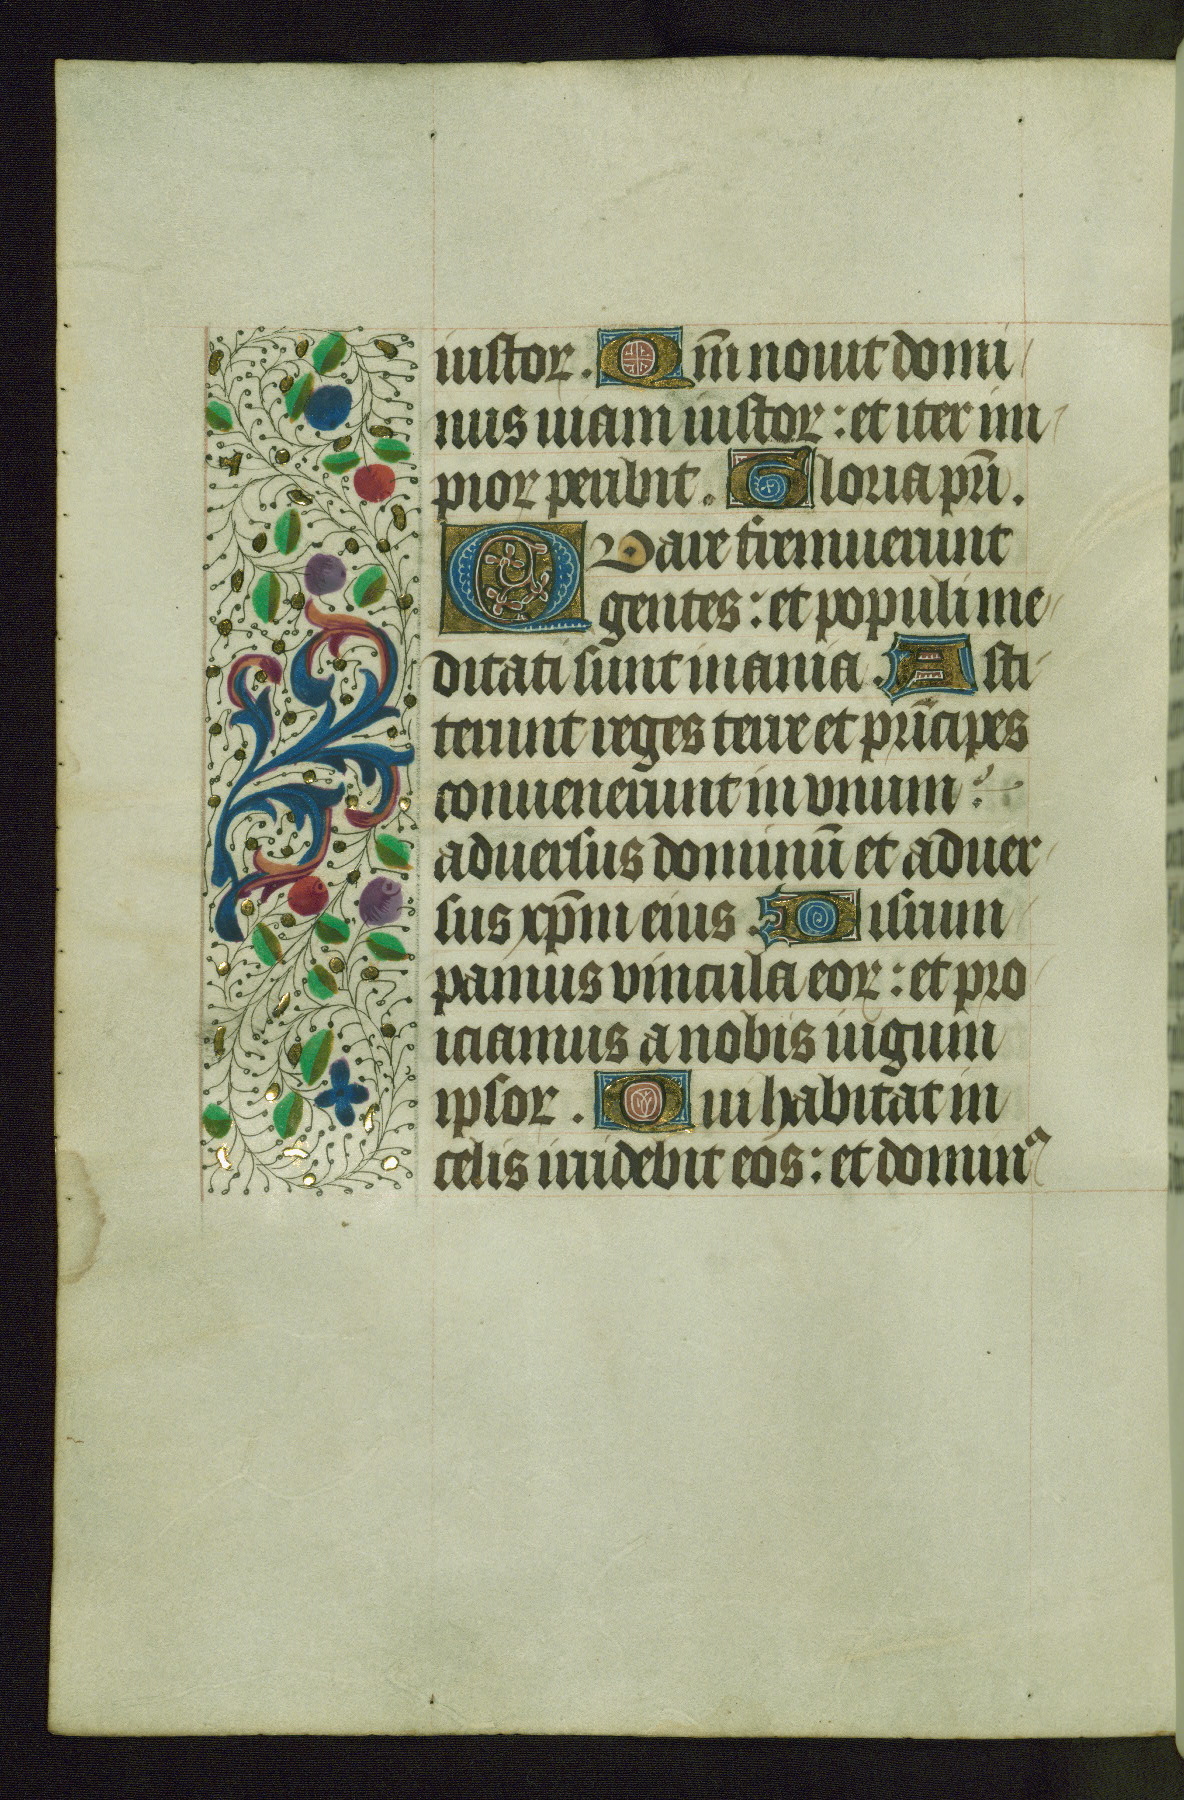 iustoꝝ. Qm̄ nouit domi
nus uiam iustoꝝ: et iter im
pioꝝ peribit. Gloria pr̄i.
QVare fremuerunt
gentes: et populi me
ditati sunt inania. Asti
terunt reges terre et prīcipes
conuenerunt in vnum:
aduersus dominū et aduer
sus xp̄m eius. Disrum
pamus vincula eoꝝ: et pro
iciamus a nobis iugum
ipsoꝝ. Qui habitat in
celis irridebit eos: et dominꝰ